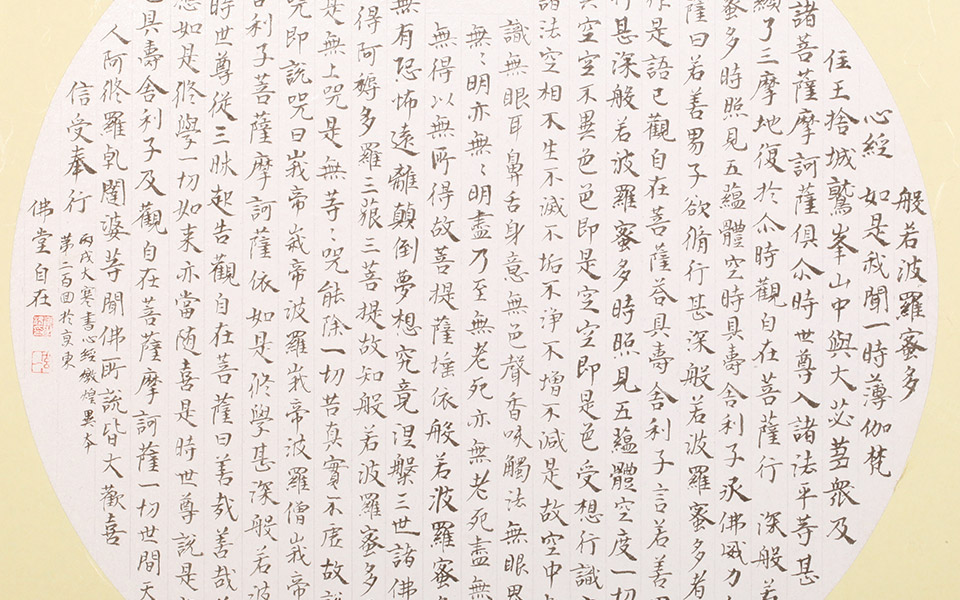 般若波羅蜜多
心經 如是我聞一時薄伽梵
住王捨城鷲峯山中與大苾蒭衆及
諸菩薩摩訶薩俱尒時世尊入諸法平等甚
顯了三摩地復於尒時觀自在菩薩行 深般若
蜜多時照見五蘊體空時具壽舍利子承佛威力
薩曰若善男子欲脩行甚深般若波羅蜜多者
是語已觀自在菩薩荅具壽舍利子言若善
行甚深般若波羅蜜多時照見五蘊體空度一切
空空不異色色即是空空即是色受想行識
諸法空相不生不滅不垢不淨不增不減是故空中
識無眼耳鼻舌身意無色聲香味觸法無眼界
無﹅明亦無﹅明盡乃至無老死亦無老死盡無
無得以無所得故菩提薩埵依般若波羅蜜
無有恐怖遠離顛倒夢想究竟涅槃三世諸佛
得阿耨多羅三藐三菩提故知般若波羅蜜多
是無上咒是無等﹅咒能除一切苦真實不虛故說
咒即說咒曰峩帝峩帝波羅峩帝波羅僧峩帝
舍利子菩薩摩訶薩依如是修學甚深般若波
時世尊從三昧起告觀自在菩薩曰善哉善哉
如是修學一切如来亦當随喜是時世尊說是
具壽舍利子及觀自在菩薩摩訶薩一切世間天
人阿修羅乹闥婆等聞佛所說皆大歡喜
信受奉行
丙戌大寒書心經燉煌異本
第二百回於京東
佛堂自在